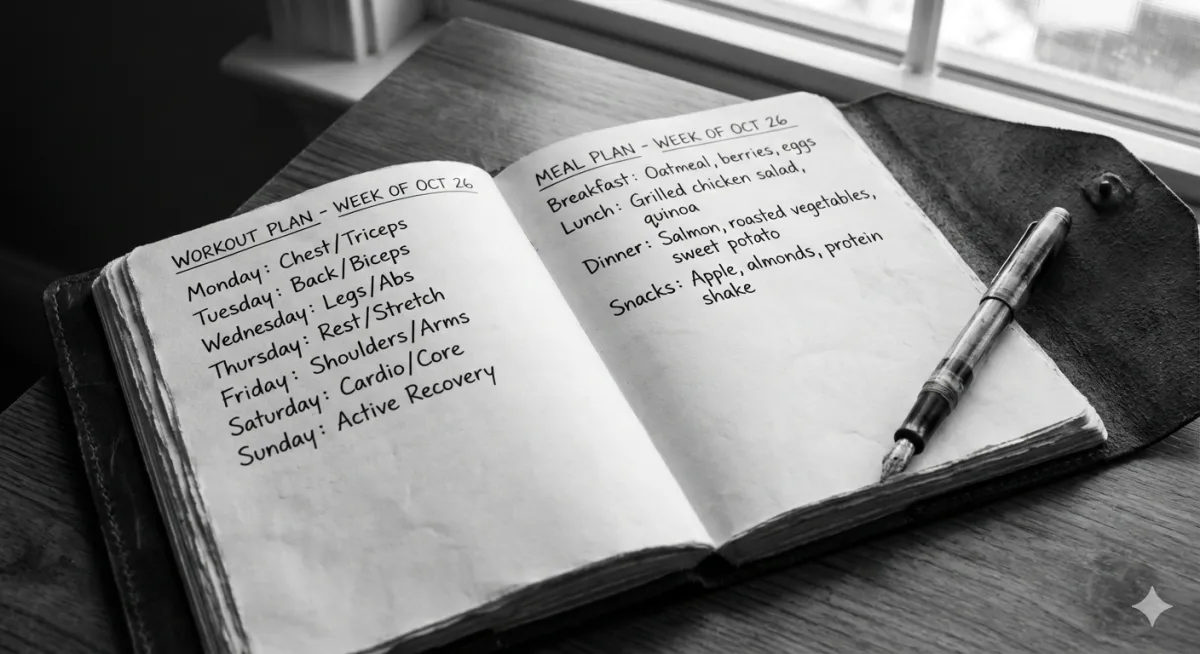 WORKOUT PLAN - WEEK OF OCT 26
Monday: Chest/Triceps
Tuesday: Back/Biceps
Wednesday: Legs/Abs
Thursday: Rest/Stretch
Friday: Shoulders/Arms
Saturday: Cardio/Core
Sunday: Active Recovery
MEAL PLAN - WEEK OF OCT 26
Breakfast: Oatmeal, berries, eggs
Lunch: Grilled chicken salad,
quinoa
Dinner: Salmon, roasted vegetables,
sweet potato
Snacks: Apple, almonds, protein
shake